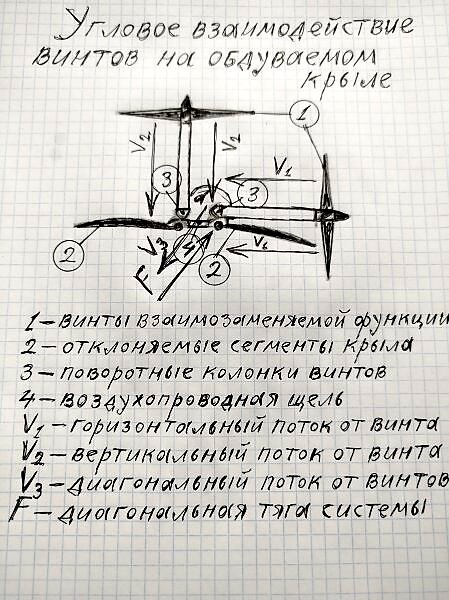 Угловое взаимодействие
винтов на обдуваемом
крыле
1
V2
V2
3
3
V1
α
2
V3
4
2
V1
F
1 – винты взаимозаменяемой функции
2 – отклоняемые сегменты крыла
3 – поворотные колонки винтов
4 – воздухопроводная щель
V1 – горизонтальный поток от винта
V2 – вертикальный поток от винта
V3 – диагональный поток от винтов
F – диагональная тяга системы